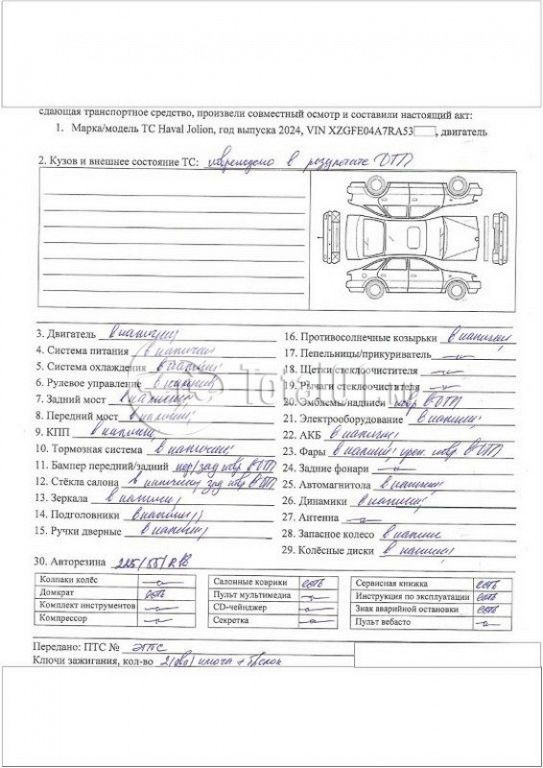 сдающая транспортное средство, произвели совместный осмотр и составили настоящий акт:
1. Марка/модель ТС Haval Jolion, год выпуска 2024, VIN XZGFE04A7RA53, двигатель
2. Кузов и внешнее состояние ТС: повреждено в результате ДТП
3. Двигатель в наличии
4. Система питания в наличии
5. Система охлаждения в наличии
6. Рулевое управление в наличии
7. Задний мост в наличии
8. Передний мост в наличии
9. КПП в наличии
10. Тормозная система в наличии
11. Бампер передний/задний пер/зад повр ДТП
12. Стёкла салона в наличии, зад повр ДТП
13. Зеркала в наличии
14. Подголовники в наличии
15. Ручки дверные в наличии
16. Противосолнечные козырьки в наличии
17. Пепельницы/прикуриватель —
18. Щетки стеклоочистителя —
19. Рычаги стеклоочистителя —
20. Эмблемы/надписи повр ДТП
21. Электрооборудование в наличии
22. АКБ в наличии
23. Фары в наличии, повр ДТП
24. Задние фонари —
25. Автомагнитола в наличии
26. Динамики в наличии
27. Антенна —
28. Запасное колесо в наличии
29. Колёсные диски в наличии
30. Авторезина 225/55/R18
Колпаки колёс —
Домкрат есть
Комплект инструментов —
Компрессор —
Салонные коврики есть
Пульт мультимедиа —
CD-чейнджер —
Секретка —
Сервисная книжка есть
Инструкция по эксплуатации есть
Знак аварийной остановки есть
Пульт вебасто —
Передано: ПТС № ЭПТС
Ключи зажигания, кол-во 2(два) ключа + брелок